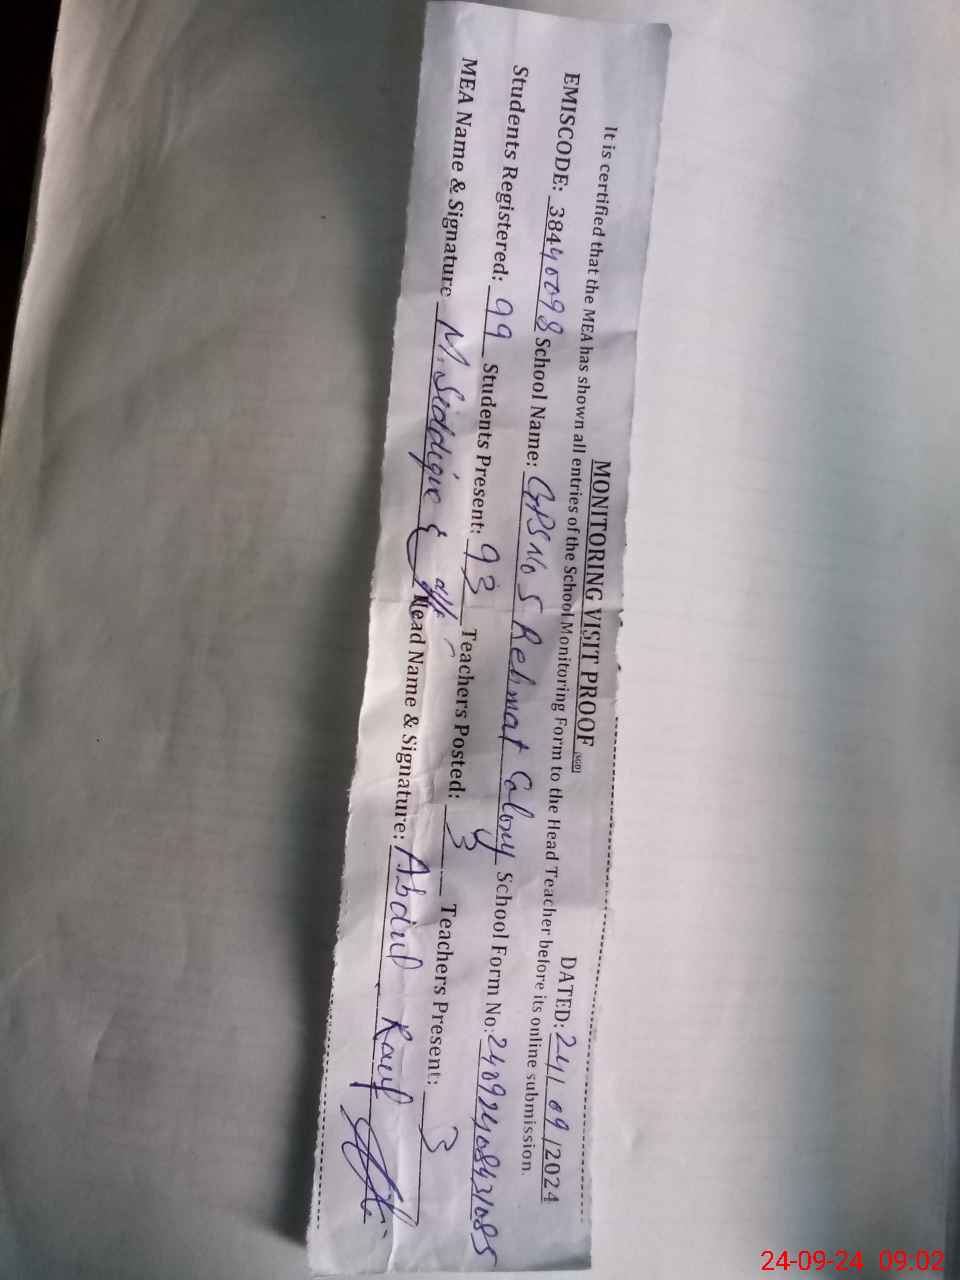 MONITORING VISIT PROOF (SGD) DATED: 24/09/2024
It is certified that the MEA has shown all entries of the School Monitoring Form to the Head Teacher before its online submission.
EMISCODE: 38440098 School Name: GPS No 5 Rehmat Colony School Form No: 24092408431085
Students Registered: 99 Students Present: 93 Teachers Posted: 3 Teachers Present: 3
MEA Name & Signature M. Siddique Head Name & Signature: Abdul Rauf
24-09-24 09:02